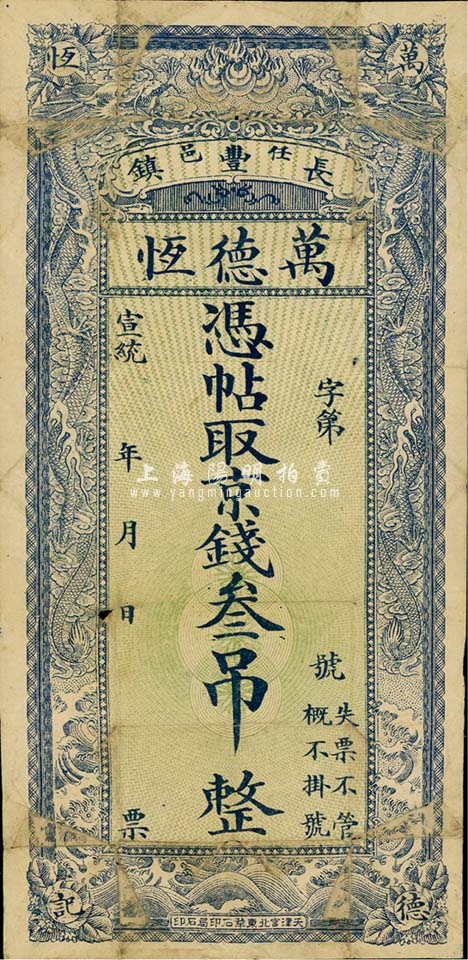 萬恆
長任豐邑鎮
萬德恆
字第 號
失票不管
概不掛號
憑帖取京錢叁吊整
宣統 年 月 日 票
上海陽明拍賣
www.yangmingauction.com
德記
天津宮北東華石印局石印